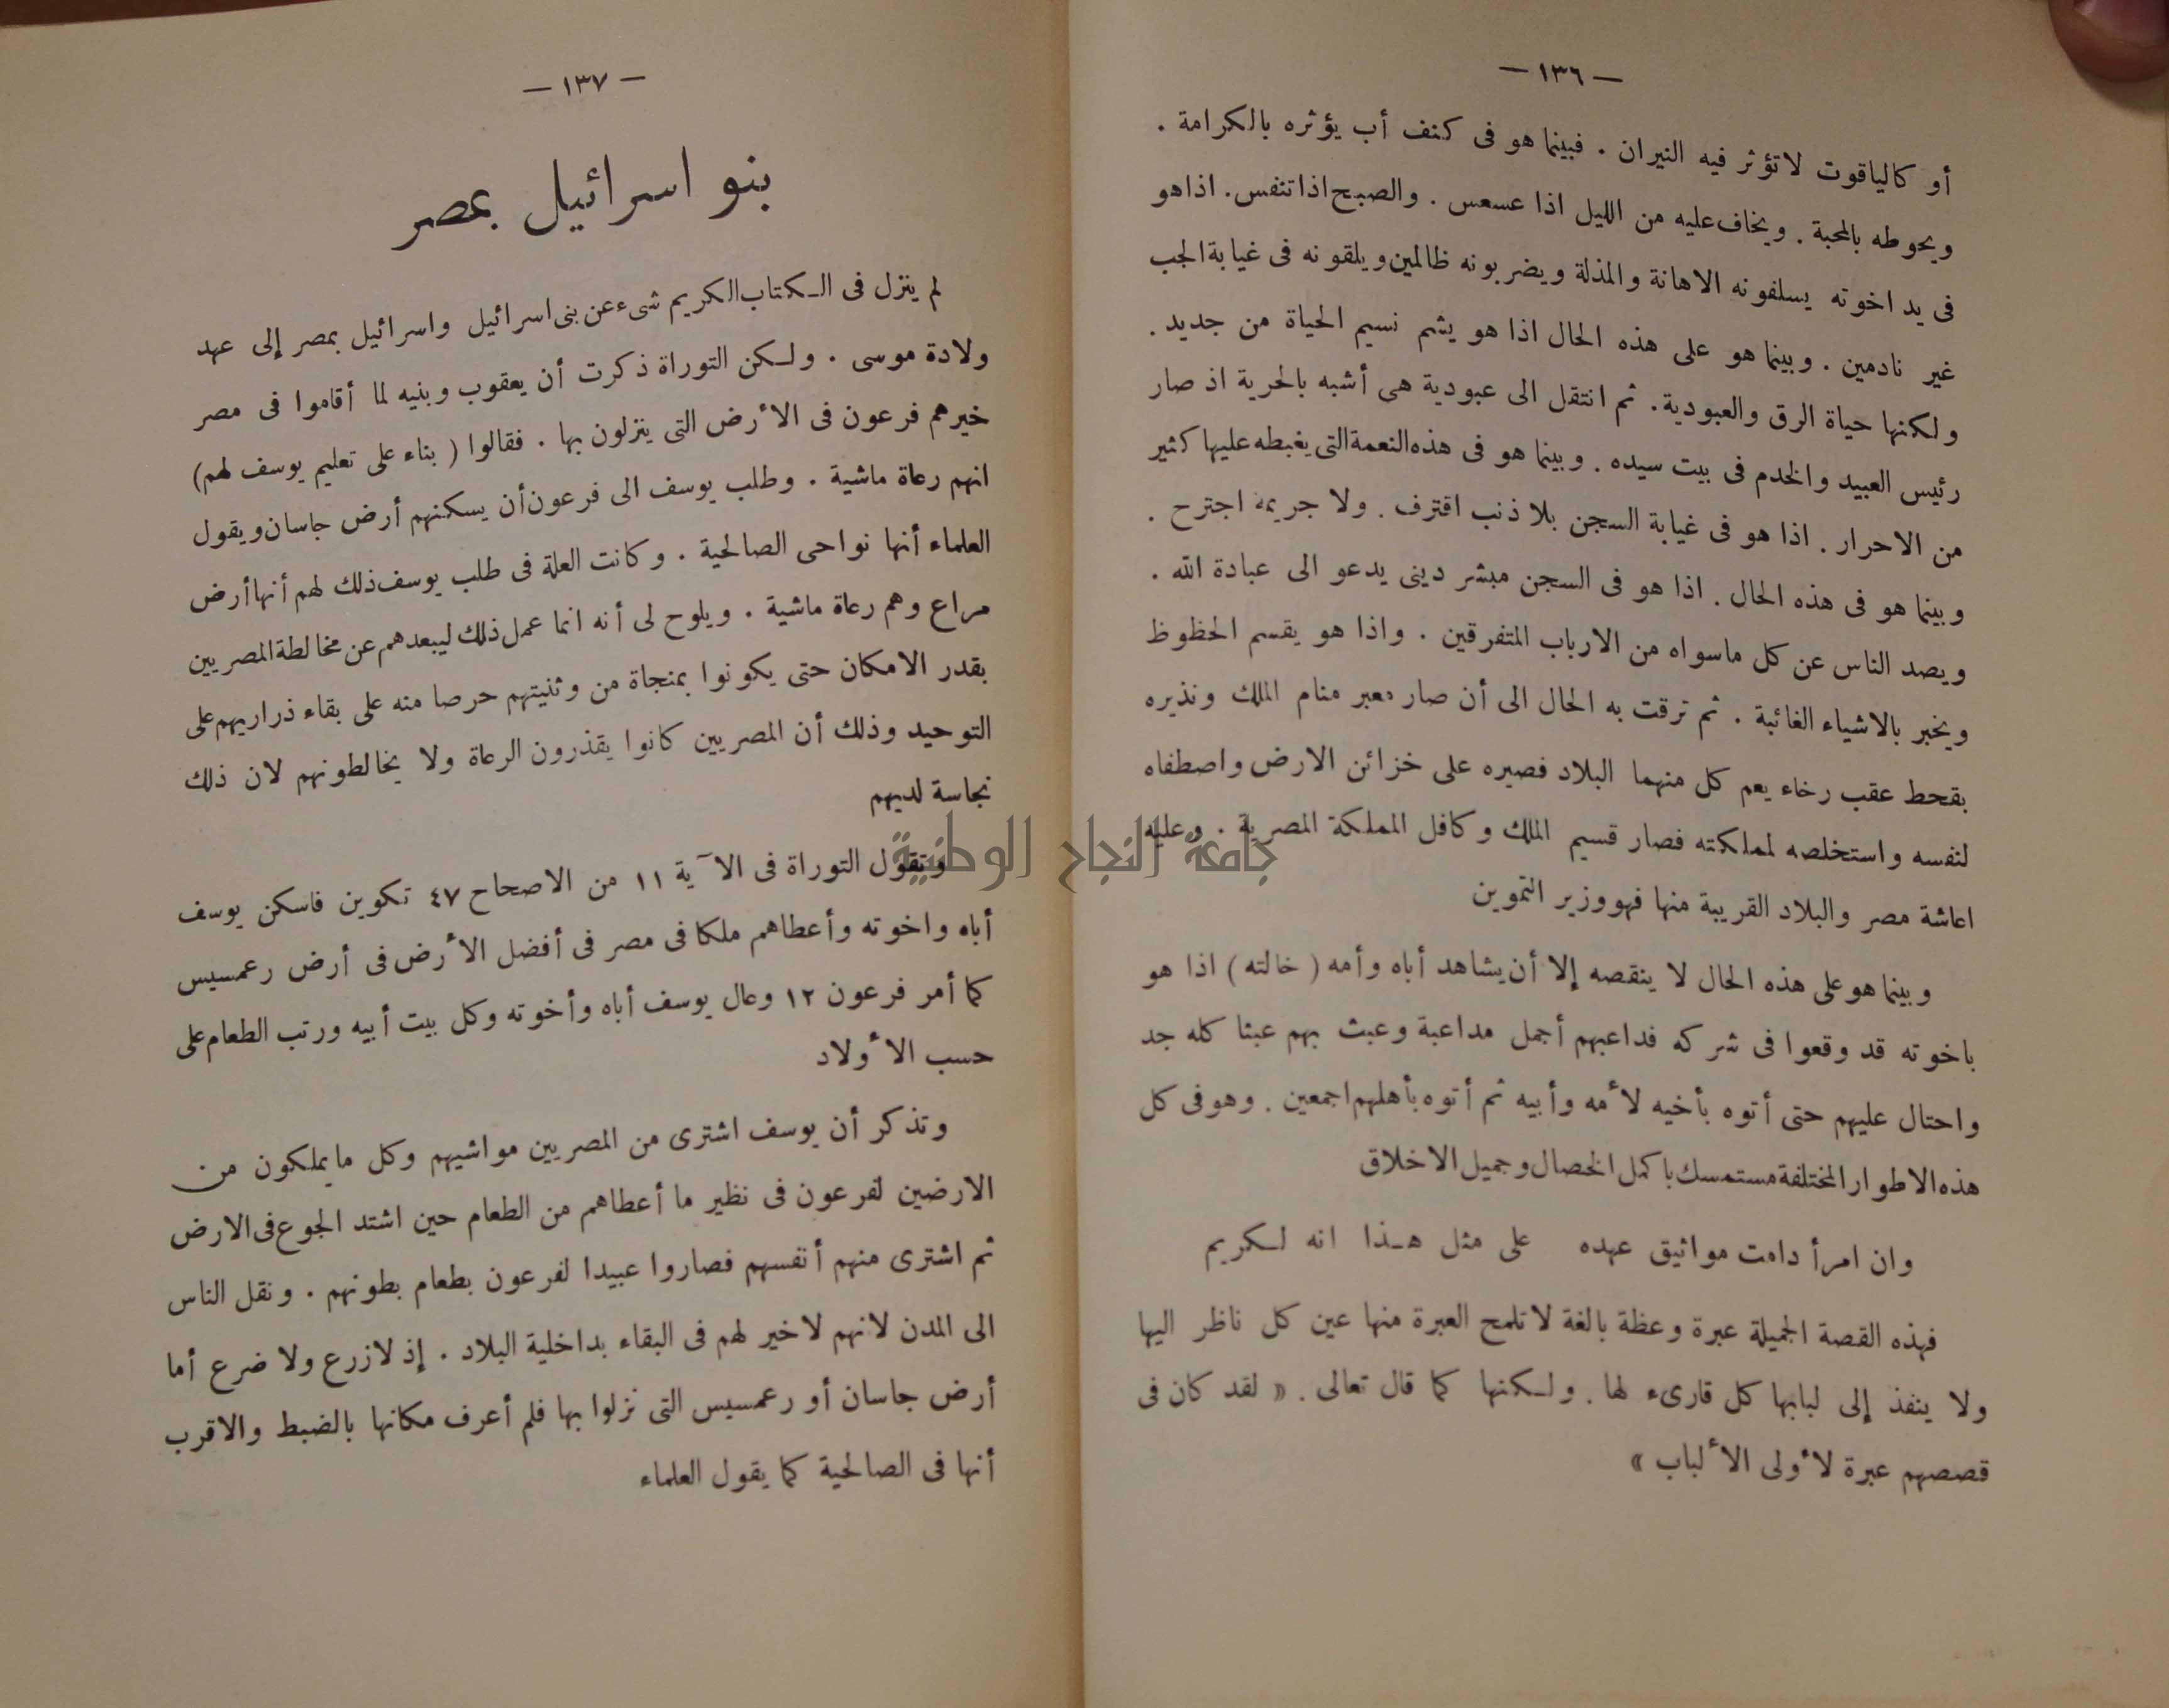 — ١٣٦ —
أو كالياقوت لا تؤثر فيه النيران . فبينما هو فى كنف أب يؤثره بالكرامة .
ويحوطه بالمحبة . ويخاف عليه من الليل اذا عسعس . والصبح اذا تنفس . اذا هو
فى يد اخوته يسلفونه الاهانة والمذلة ويضربونه ظالمين ويلقونه فى غيابة الجب
غير نادمين . وبينما هو على هذه الحال اذا هو يشم نسيم الحياة من جديد .
ولكنها حياة الرق والعبودية . ثم انتقل الى عبودية هى أشبه بالحرية اذ صار
رئيس العبيد والخدم فى بيت سيده . وبينما هو فى هذه النعمة التى يغبطه عليها كثير
من الاحرار . اذا هو فى غيابة السجن بلا ذنب اقترف . ولا جريمة اجترح .
وبينما هو فى هذه الحال . اذا هو فى السجن مبشر دينى يدعو الى عبادة الله .
ويصد الناس عن كل ماسواه من الارباب المتفرقين . واذا هو يقسم الحظوظ
ويخبر بالاشياء الغائبة . ثم ترقت به الحال الى أن صار معبر منام الملك ونذيره
بقحط عقب رخاء يعم كل منهما البلاد فصيره على خزائن الارض واصطفاه
لنفسه واستخلصه لمملكته فصار قسيم الملك وكافل المملكة المصرية . وعليه
اعاشة مصر والبلاد القريبة منها فهو وزير التموين
وبينما هو على هذه الحال لا ينقصه إلا أن يشاهد أباه وأمه ( خالته ) اذا هو
باخوته قد وقعوا فى شركه فداعبهم أجمل مداعبة وعبث بهم عبثا كله جد
واحتال عليهم حتى أتوه بأخيه لأمه وأبيه ثم أتوه بأهلهم اجمعين . وهو فى كل
هذه الاطوار المختلفة مستمسك باكمل الخصال وجميل الاخلاق
وان امرأ دامت مواثيق عهده على مثل هـذا انه لـكريم
فهذه القصة الجميلة عبرة وعظة بالغة لا تلمح العبرة منها عين كل ناظر اليها
ولا ينفذ إلى لبابها كل قارىء لها . ولـكنها كما قال تعالى . « لقد كان فى
قصصهم عبرة لأولى الألباب »
— ١٣٧ —
بنو اسرائيل بمصر
لم ينزل فى الـكتاب الكريم شىء عن بنى اسرائيل واسرائيل بمصر إلى عهد
ولادة موسى . ولـكن التوراة ذكرت أن يعقوب وبنيه لما أقاموا فى مصر
خيرهم فرعون فى الأرض التى ينزلون بها . فقالوا ( بناء على تعليم يوسف لهم )
انهم رعاة ماشية . وطلب يوسف الى فرعون أن يسكنهم أرض جاسان ويقول
العلماء أنها نواحى الصالحية . وكانت العلة فى طلب يوسف ذلك لهم أنها أرض
مراع وهم رعاة ماشية . ويلوح لى أنه انما عمل ذلك ليبعدهم عن مخالطة المصريين
بقدر الامكان حتى يكونوا بمنجاة من وثنيتهم حرصا منه على بقاء ذراريهم على
التوحيد وذلك أن المصريين كانوا يقذرون الرعاة ولا يخالطونهم لان ذلك
نجاسة لديهم
وتقول التوراة فى الآية ١١ من الاصحاح ٤٧ تكوين فاسكن يوسف
أباه واخوته وأعطاهم ملكا فى مصر فى أفضل الأرض فى أرض رعمسيس
كما أمر فرعون ١٢ وعال يوسف أباه وأخوته وكل بيت أبيه ورتب الطعام على
حسب الأولاد
وتذكر أن يوسف اشترى من المصريين مواشيهم وكل ما يملكون من
الارضين لفرعون فى نظير ما أعطاهم من الطعام حين اشتد الجوع فى الارض
ثم اشترى منهم أنفسهم فصاروا عبيدا لفرعون بطعام بطونهم . ونقل الناس
الى المدن لانهم لا خير لهم فى البقاء بداخلية البلاد . إذ لا زرع ولا ضرع أما
أرض جاسان أو رعمسيس التى نزلوا بها فلم أعرف مكانها بالضبط والاقرب
أنها فى الصالحية كما يقول العلماء
جامعة النجاح الوطنية